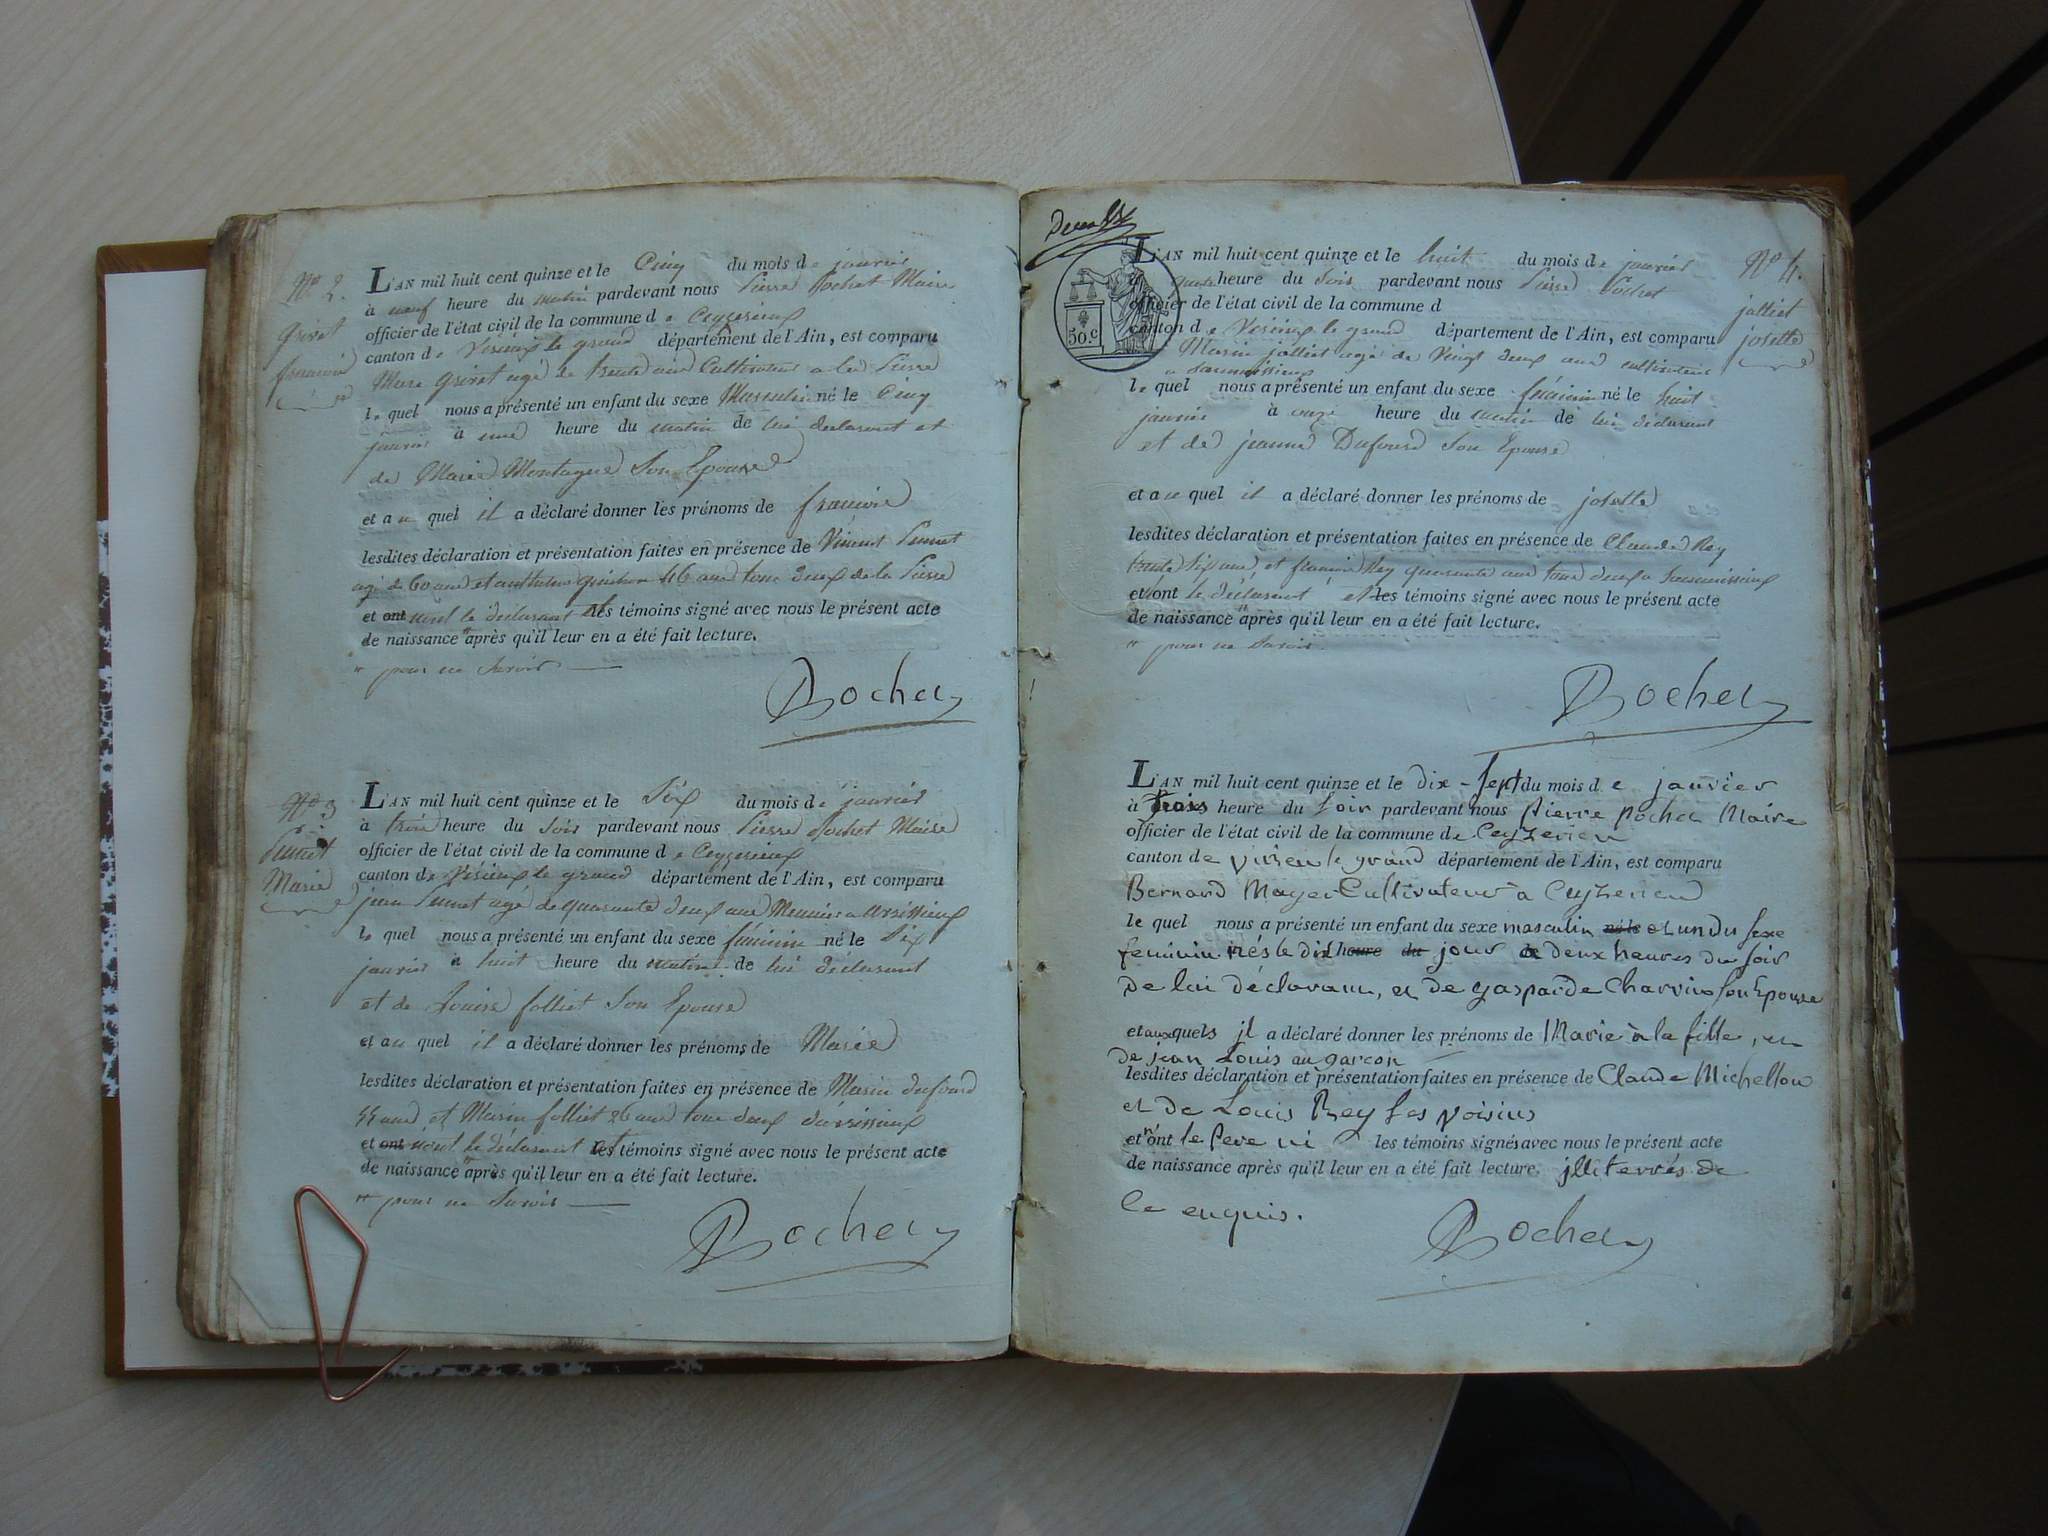 Nº 2.
Grivet
françois
L'AN mil huit cent quinze et le Cinq du mois de janvier
à neuf heure du matin pardevant nous Pierre Pochet Maire
officier de l'état civil de la commune de Ceyzerieux
canton de Virieux le grand département de l'Ain, est comparu
Marc Grivet agé de trente ans Cultivateur a la Pierre
le quel nous a présenté un enfant du sexe Masculin né le Cinq
janvier à une heure du matin de lui déclarant et
de Marie Montagne Son Epouse
et au quel il a déclaré donner les prénoms de françois
lesdites déclaration et présentation faites en présence de Vincent Peunet
agé de 60 ans et anthelme 46 ans tous deux de la Pierre
et ont nont le déclarant et les témoins signé avec nous le présent acte
de naissance " après qu'il leur en a été fait lecture.
" pour ne Savoir
Pochet
Nº 3
Peunet
Marie
L'AN mil huit cent quinze et le Six du mois de janvier
à trois heure du Soir pardevant nous Pierre Pochet Maire
officier de l'état civil de la commune de Ceyzerieux
canton de Virieux le grand département de l'Ain, est comparu
jean Peunet agé de quarante deux ans Meunier a avrissieux
le quel nous a présenté un enfant du sexe féminin né le Six
janvier à huit heure du matin de lui déclarant
et de Louise folliet Son Epouse
et au quel il a déclaré donner les prénoms de Marie
lesdites déclaration et présentation faites en présence de Marin dufourd
55 ans et Marin folliet 26 ans tous deux d'avrissieux
et ont nont le déclarant et les témoins signé avec nous le présent acte
de naissance " après qu'il leur en a été fait lecture.
" pour ne Savoir
Pochet
50.c
Nº 4.
jolliet
josette
L'AN mil huit cent quinze et le huit du mois de janvier
à quatre heure du Soir pardevant nous Pierre Pochet
officier de l'état civil de la commune d
canton de Virieux le grand département de l'Ain, est comparu
Marin jolliet agé de Vingt deux ans cultivateur
le quel nous a présenté un enfant du sexe féminin né le huit
janvier à onze heure du matin de lui déclarant
et de jeanne Dufourd Son Epouse
et au quel il a déclaré donner les prénoms de josette
lesdites déclaration et présentation faites en présence de Claude Rey
trente Six ans et françois Rey quarante ans tous deux a
et n'ont le déclarant et les témoins signé avec nous le présent acte
de naissance " après qu'il leur en a été fait lecture.
" pour ne Savoir.
Pochet
L'AN mil huit cent quinze et le dix-Sept du mois de janvier
à trois heure du Soir pardevant nous pierre pochet Maire
officier de l'état civil de la commune de Ceyzerieu
canton de virieu le grand département de l'Ain, est comparu
Bernard Mayet Cultivateur à Ceyzerieu
le quel nous a présenté un enfant du sexe masculin né le et un du sexe
feminin nés le dit heure du jour de deux heures du soir
de lui déclarant, et de gasparde Charvin son Epouse
et auxquels jl a déclaré donner les prénoms de Marie à la fille, et
de jean Louis au garcon
lesdites déclaration et présentation faites en présence de Claude Michellou
et de Louis Rey ses voisins
et n'ont le pere ni les témoins signés avec nous le présent acte
de naissance après qu'il leur en a été fait lecture. jlliterrés de
ce enquis.
Pochet